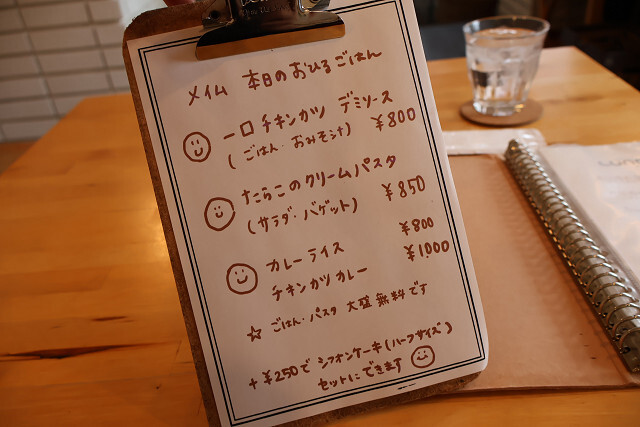 メイム 本日のおひるごはん
一口チキンカツ デミソース ¥800
(ごはん・おみそ汁)
たらこのクリームパスタ ¥850
(サラダ・バゲット)
カレーライス ¥800
チキンカツカレー ¥1,000
☆ ごはん・パスタ 大盛無料です
+¥250で シフォンケーキ(ハーフサイズ)
セットにできます